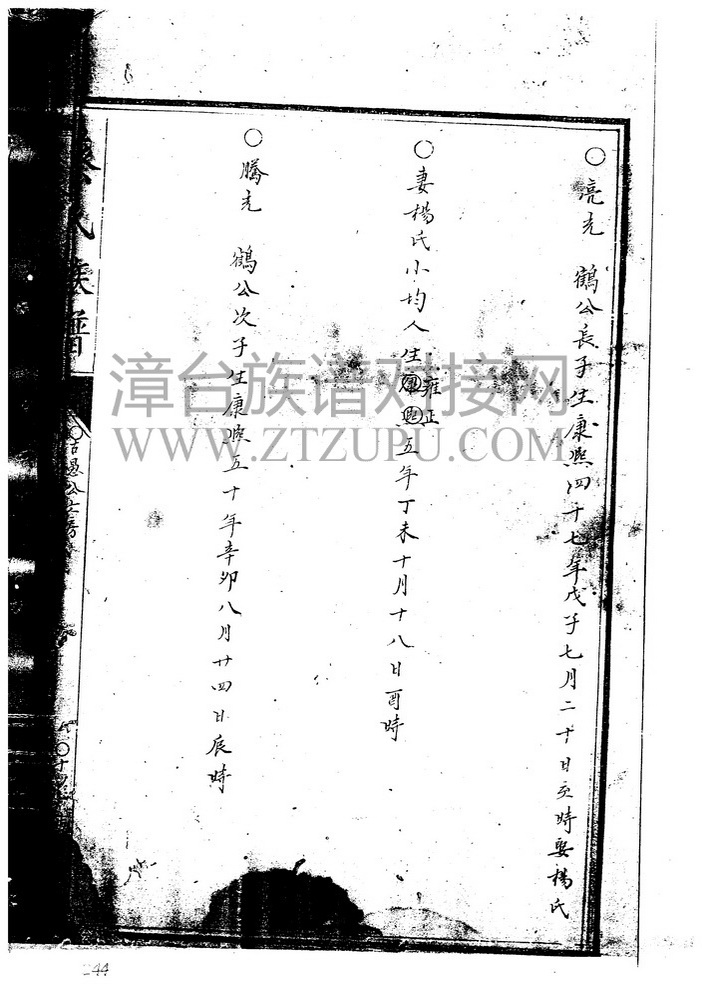 ○亮光 鶴公長子生康熙四十七年戊子七月二十日亥時娶楊氏
○妻楊氏小均人生康熙五年丁未十月十八日酉時
雍正
○騰光 鶴公次子生康熙五十年辛卯八月廿四日辰時
氏族譜
漳台族谱对接网
WWW.ZTZUPU.COM
244